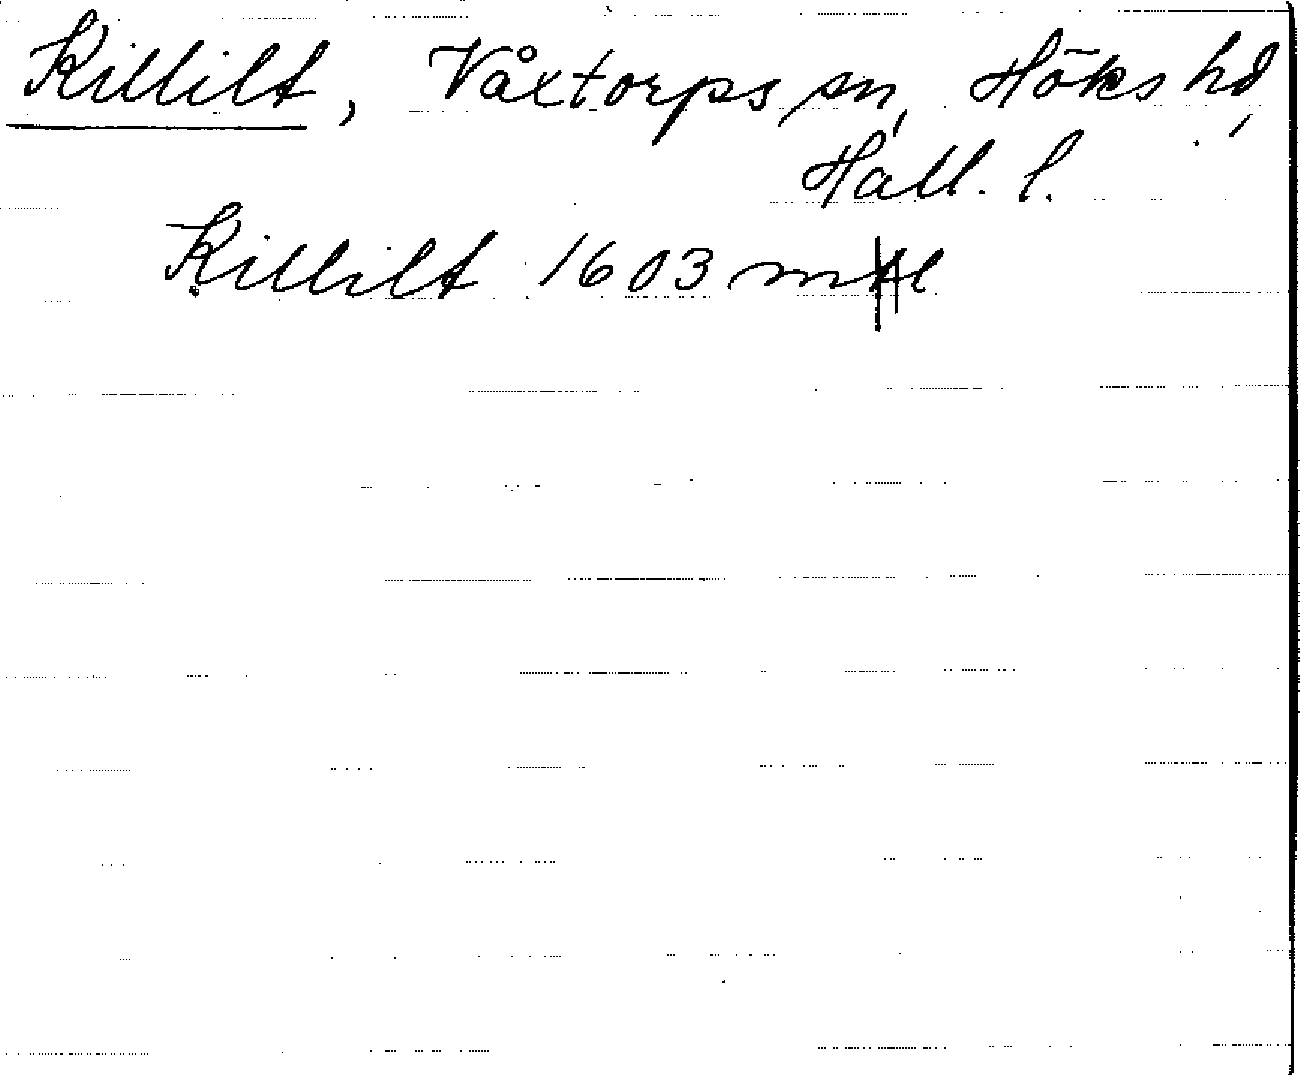 Killilt, Våxtorps sn, Höks hd,
Hall. l.
Killilt 1603